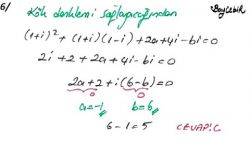 6/ Kök denklemi sağlayacağından
BayÇebik
(1+i)² + (1+i)(1-i) + 2a + 4i - bi = 0
2i + 2 + 2a + 4i - bi = 0
2a+2 + i(6-b) = 0
0 0
a=-1 b=6
6-1=5 CEVAP: C